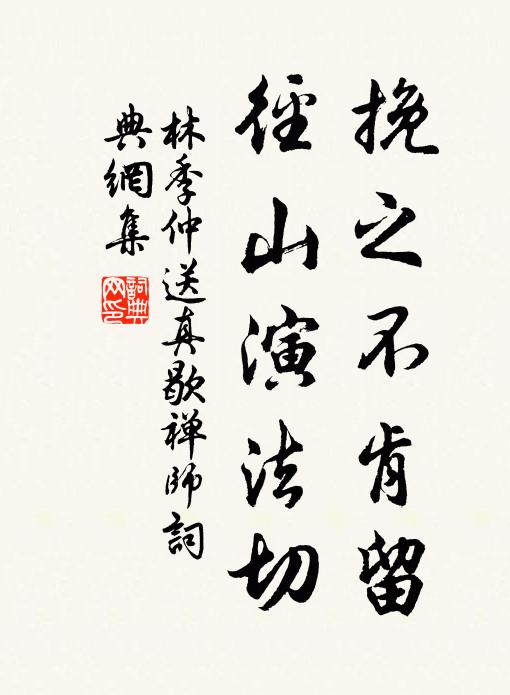 挽之不肯留
徑山演法切
林季仲送真歇禅師詞
典網集
詞典
网印